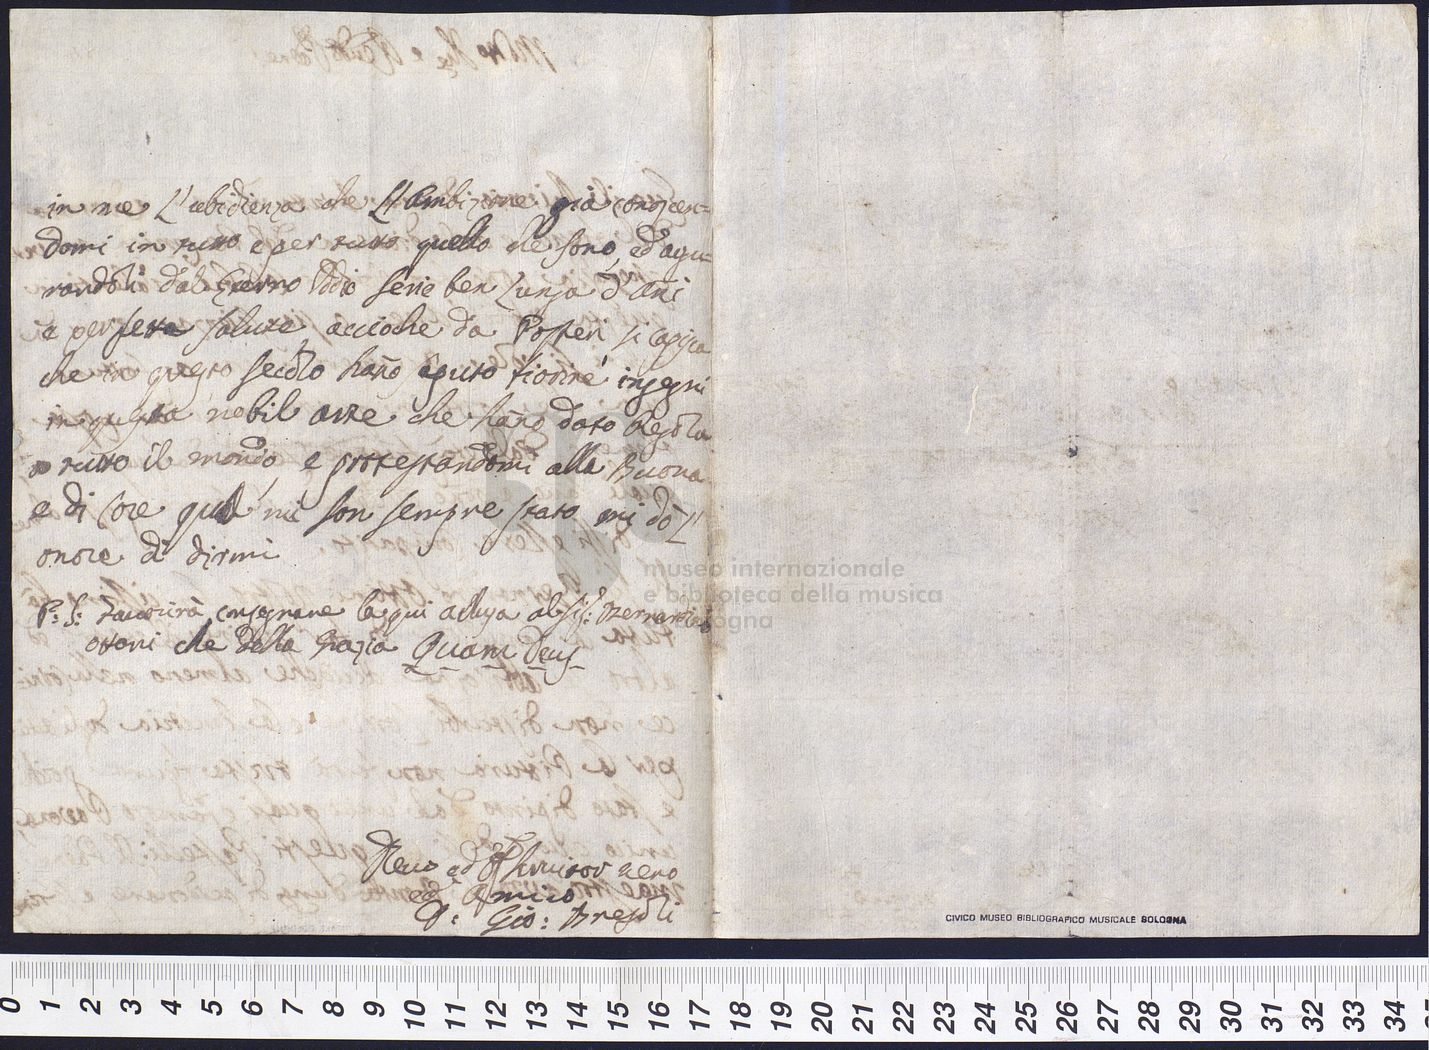 in me L'ubidienza che L'Ambizione già conoscen=
domi in tutto e per tutto quello che sono, ed agu=
randoli dal Eterno Iddio serie ben Lunga d'Ani
e perfetta salute accioche da Posteri si sapia
che in questo secolo hano aputo fiorire ingegni
in questa nobil arte che hano dato Regola
a tutto il mondo e protestandomi alla Buona
e di Core qual mi son sempre stato mi dò L'
onore di dirmi
P: S: Favorirà consegnare la qui aclusa al Sig:
Ottoni che della Grazia Quam Deus
ed Servitor vero
ed Amico
D: Gio: Bregoli
museo internazionale
e biblioteca della musica
bologna
CIVICO MUSEO BIBLIOGRAFICO MUSICALE BOLOGNA
0 1 2 3 4 5 6 7 8 9 10 11 12 13 14 15 16 17 18 19 20 21 22 23 24 25 26 27 28 29 30 31 32 33 34